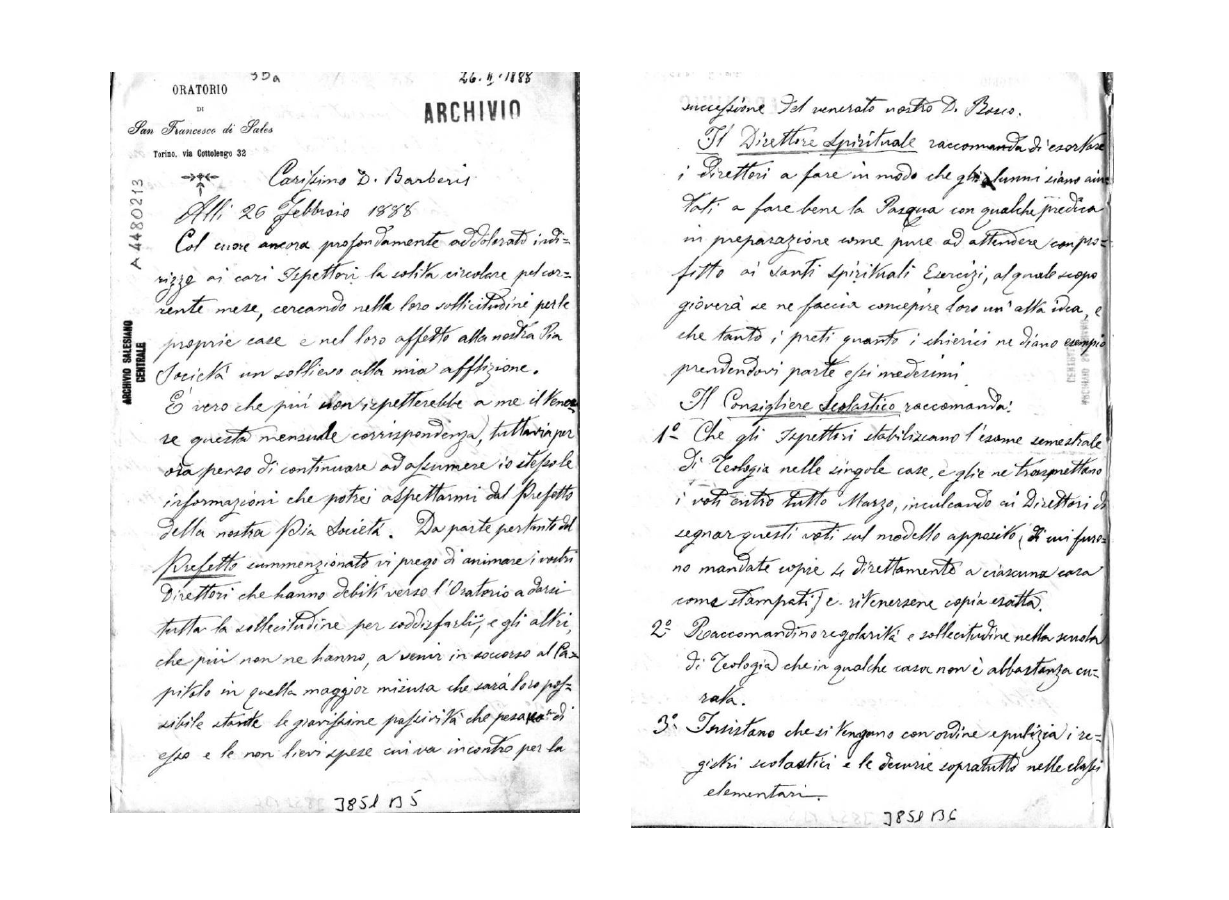 35a
26.II.1888
ORATORIO
DI
San Francesco di Sales
Torino, via Cottolengo 32
ARCHIVIO
A 4480213
ARCHIVIO SALESIANO
CENTRALE
Carissimo D. Barberis
Alli 26 Febbraio 1888
Col cuore ancora profondamente addolorato indi=
rizzo ai cari Ispettori la solita circolare pel cor=
rente mese, cercando nella loro sollicitudine per le
proprie case e nel loro affetto alla nostra Pia
Società un sollievo alla mia afflizione.
È vero che più non ispetterebbe a me il tene
re questa mensuale corrispondenza, tuttavia per
ora penso di continuare ad assumere io stesso le
informazioni che potrei aspettarmi dal Prefetto
della nostra Pia Società. Da parte pertanto del
Prefetto summenzionato vi prego di animare i vostri
Direttori che hanno debiti verso l'Oratorio a darsi
tutta la sollecitudine per soddisfarli, e gli altri,
che più non ne hanno, a venir in soccorso al Ca=
pitolo in quella maggior misura che sarà loro pos=
sibile stante le gravissime passività che pesano di
esso e le non lievi spese cui va incontro per la
J851 B5
successione del venerato nostro D. Bosco.
Il Direttore Spirituale raccomanda di esortare
i Direttori a fare in modo che gli alunni siano aiu
tati a fare bene la Pasqua con qualche predica
in preparazione come pure ad attendere con pro=
fitto ai Santi Spirituali Esercizi, al quale scopo
gioverà se ne faccia concepire loro un'alta idea, e
che tanto i preti quanto i chierici ne diano esempio
prendendovi parte essi medesimi
Il Consigliere Scolastico raccomanda:
1º Che gli Ispettori stabiliscano l'esame semestrale
di Teologia nelle singole case, e glie ne trasmettano
i voti entro tutto Marzo, inculcando ai Direttori di
segnar questi voti sul modello apposito, (di cui furo=
no mandate copie 4 direttamente a ciascuna casa
come stampati) e ritenersene copia esatta.
2º Raccomandino regolarità e sollecitudine nella scuola
di Teologia) che in qualche casa non è abbastanza cu=
rata.
3º Insistano che si tengano con ordine e pulizia i re=
gistri scolastici e le decurie sopratutto nelle classi
elementari.
J851 B6